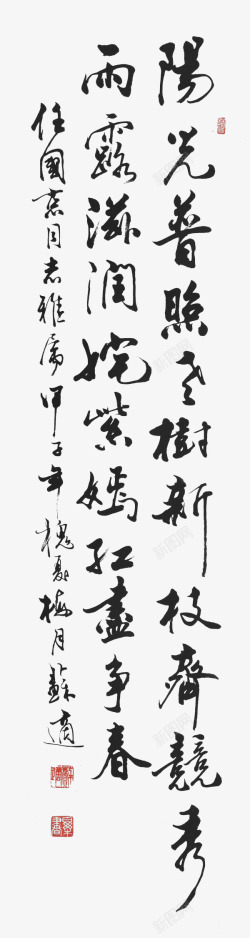 陽光普照老樹新枝齊競秀
雨露滋潤姹紫嫣紅盡争春
任國志同志雅屬甲子年槐夏梅月蘇適